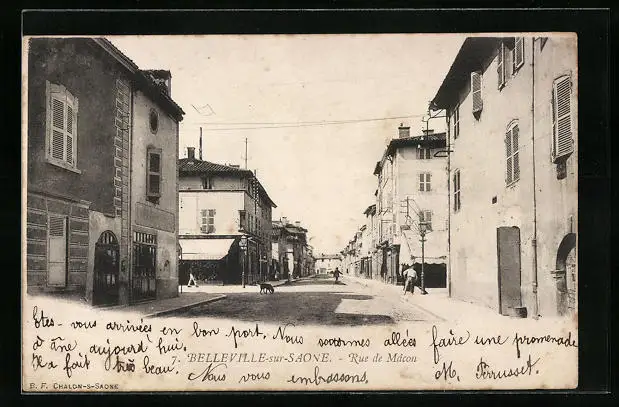 Etes-vous arrivées en bon port. Nous sommes allés faire une promenade
d'âne aujourd'hui.
Il a fait très beau. Nous vous embrassons. M. Perrusset.
7 - BELLEVILLE-sur-SAONE. - Rue de Mâcon
B. F. CHALON-S-SAONE